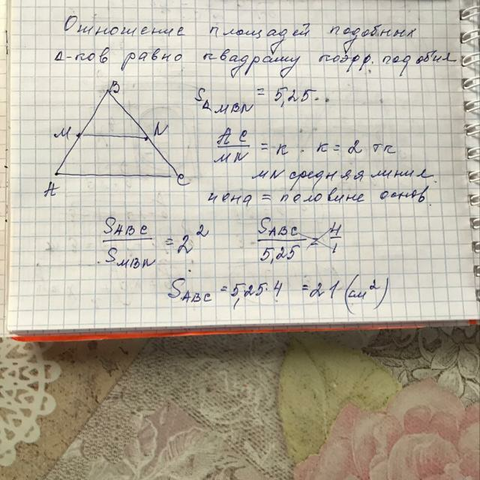 Отношение площадей подобных
Δ-ков равно квадрату коэфф. подобия
B
M N
A C
S△MBN = 5,25.
AC/MN = к . к = 2 тк
MN средняя линия
и она = половине основ.
SABC/SMBN = 2²
SABC/5,25 = 4/1
SABC = 5,25·4 = 21 (см²)